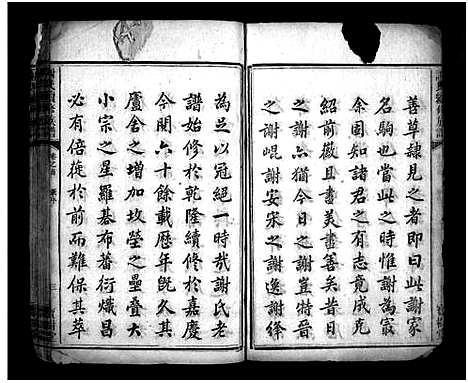 善草隸見之者即曰此謝家
名駒也當此之時惟謝為最
余固知諸君之有志竟成克
紹前徽且盡美盡善矣昔日
之謝亦猶今日之謝豈特晉
之謝崐謝安宋之謝逸謝絳
為足以冠絕一時哉謝氏老
譜始修於乾隆續修於嘉慶
今閱六十餘載歷年既久其
廬舍之增加坟塋之壘疊大
小宗之星羅碁布蕃衍熾昌
必有倍蓰於前而難保其萃